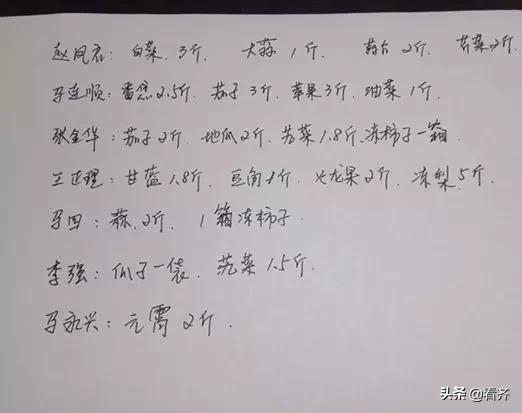 赵凤存: 白菜.3斤 大蒜1斤 蒜台2斤 芹菜2斤.
马连顺: 香蕉2.5斤. 茄子3斤. 苹果3斤. 油菜1斤.
张金华: 茄子2斤. 地瓜2斤. 芹菜1.8斤.冻柿子一箱
王正理: 甘蓝1.8斤. 豆角1斤. 火龙果2斤. 冻梨5斤.
马四: 蒜.2斤. 1箱冻柿子.
李强: 瓜子一袋. 芫菜1.5斤.
马永兴: 元霄2斤.
头条 @看齐